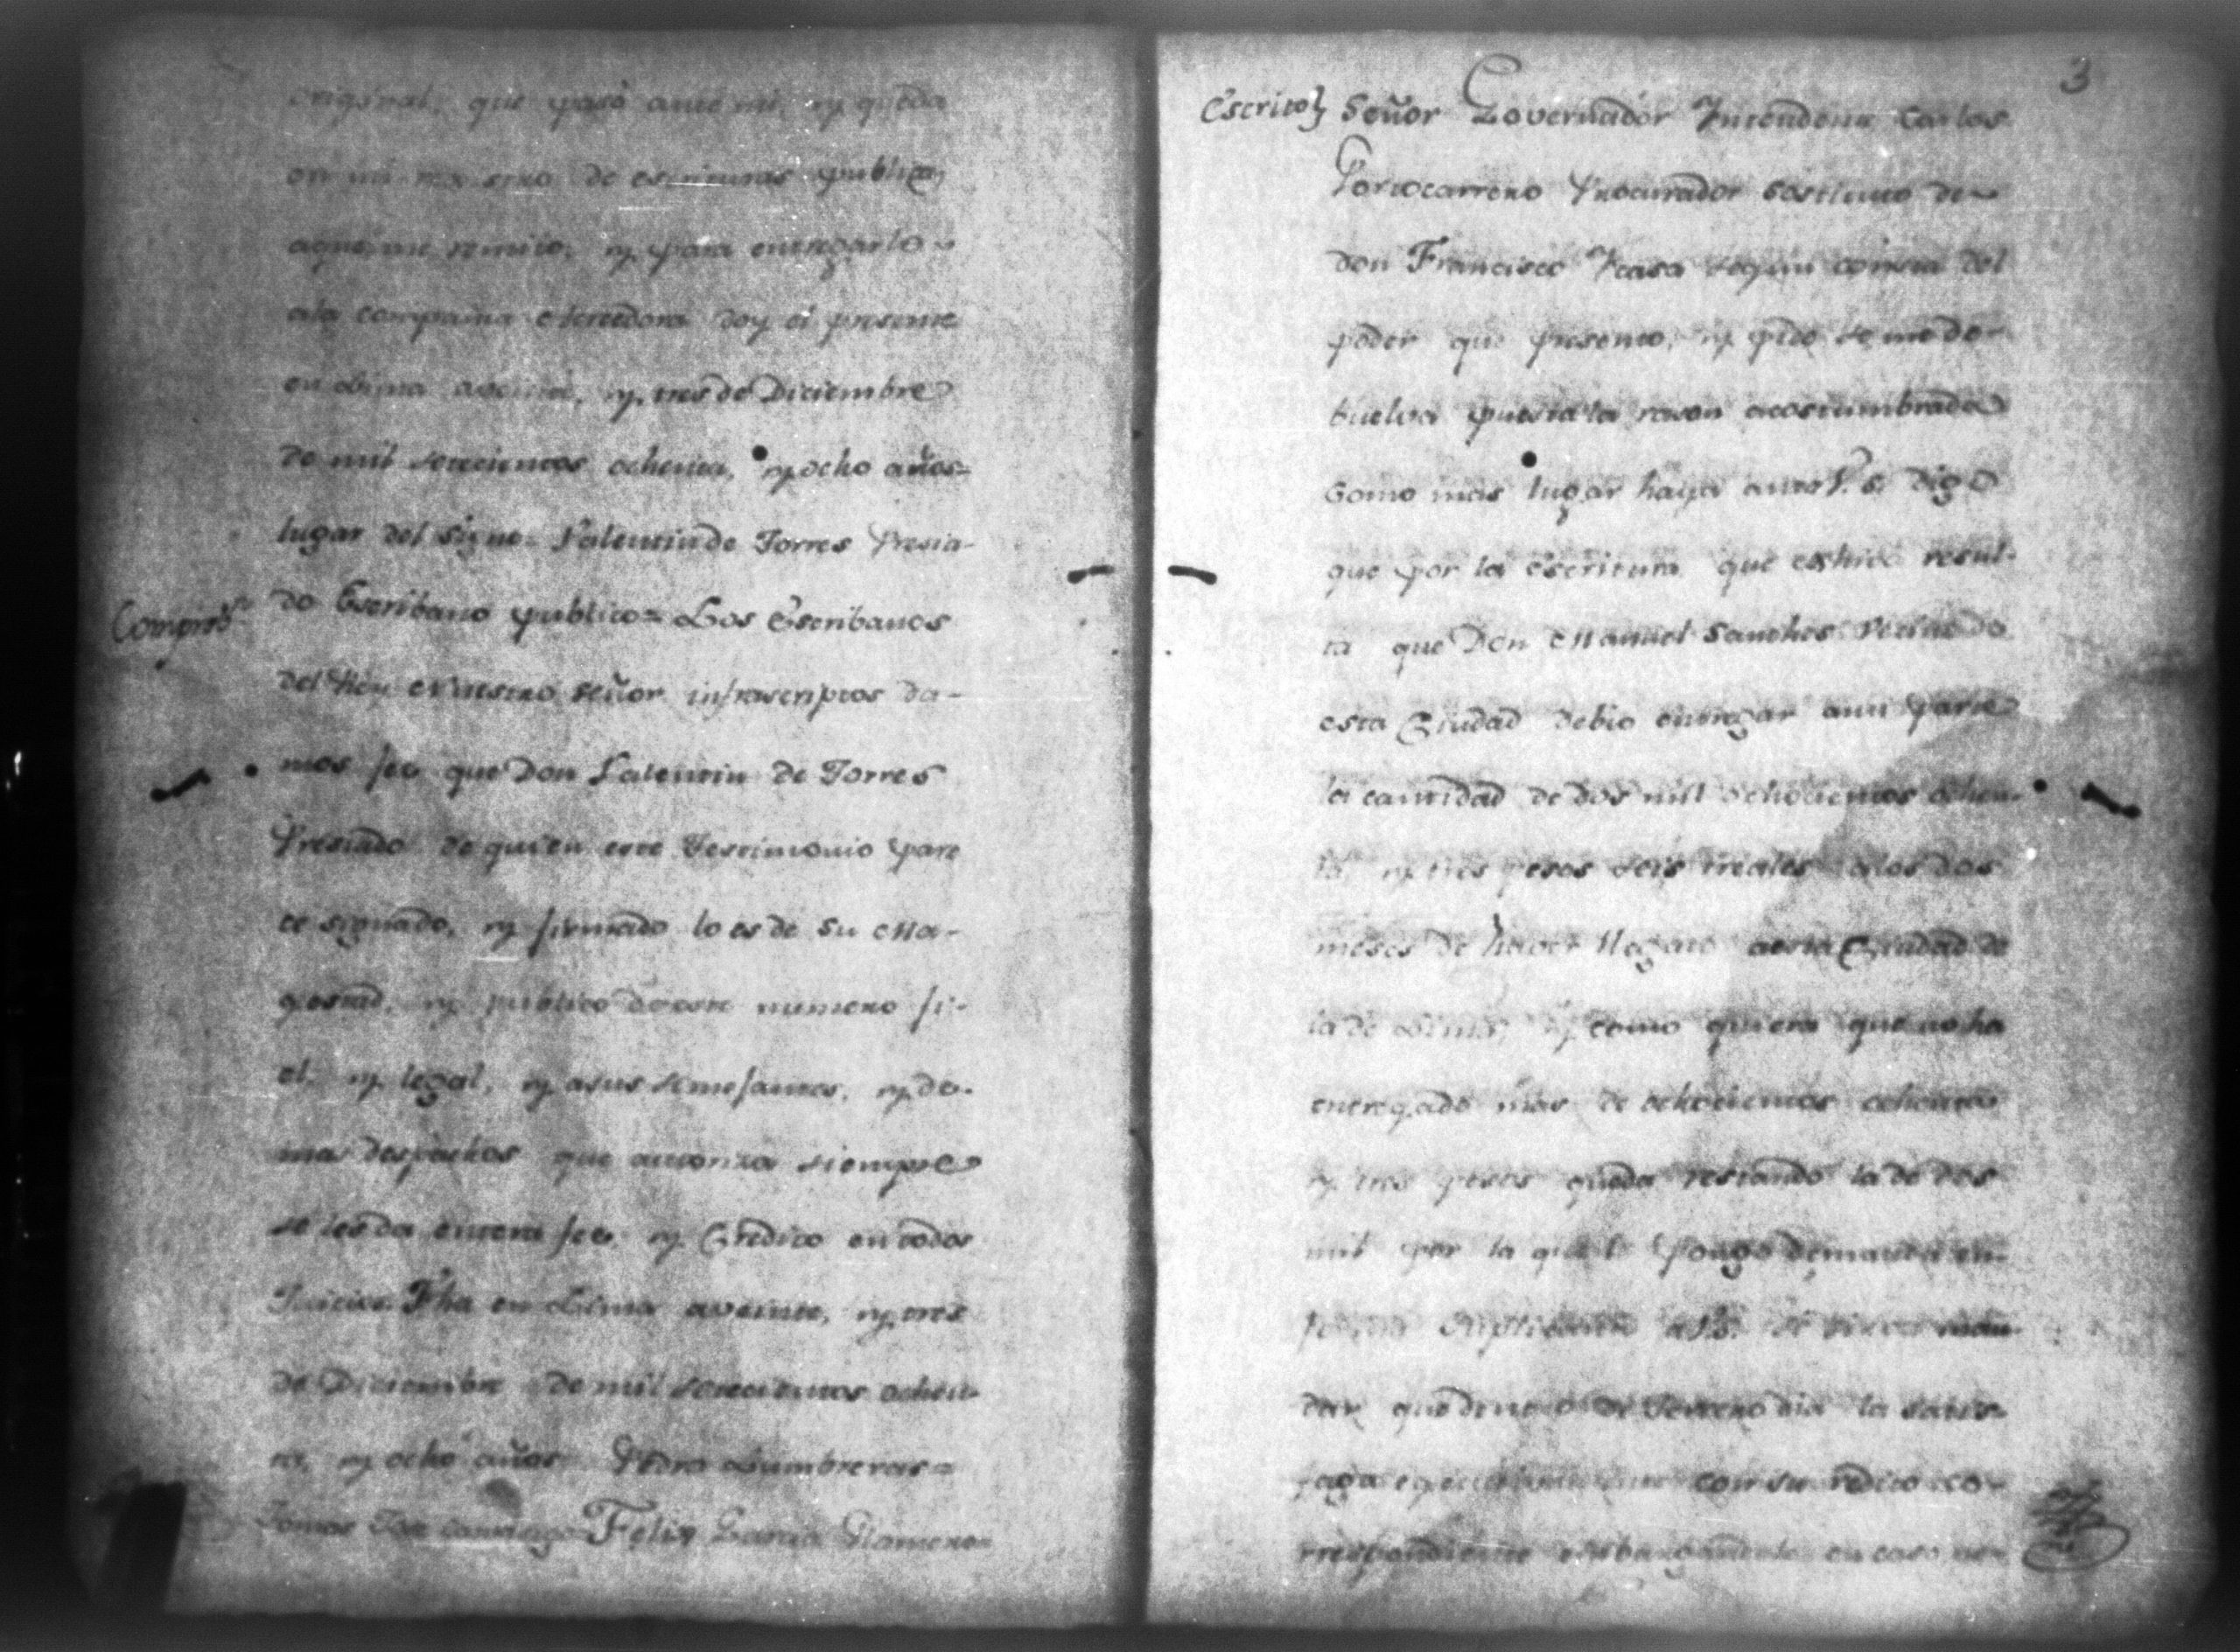 original, que pasó ante mi, y queda
en mi rexistro de escrituras publicas
aque me remito, y para entregarlo
ala compañia Acreedora doy el presente
en Lima aveinte, y tres de Diciembre
de mil setecientos ochenta, y ocho años=
lugar del signo= Valentin de Torres Presia-
Comprob.n
do Escribano publico= Los Escribanos
del Rey Nuestro señor infrascriptos da-
mos fee que Don Valentin de Torres
Presiado de quien este Testimonio pare
ce signado, y firmado lo es de su Ma-
gestad, y publico de este numero fi-
el, y legal, y asus semejantes, y de-
mas despachos que autoriza siempre
se les da entera fee, y Credito en todos
Juicios. Fha en Lima aveinte, y tres
de Diciembre de mil setecientos ochen-
ta, y ocho años= Pedro Lumbreras=
Tomas Jose Camargo= Felix Garcia Romero=
3
Escrito} Señor Governador Yntendente Carlos
Portocarrero Procurador sostituto de
don Francisco Ycasa segun consta del
poder que presento, y pido se me de-
buelva puesta la rason acostumbrada
Como mas lugar haya ante V. S. digo
que por la escritura que eshivo resul-
ta que Don Manuel Sanches Vecino de
esta Ciudad debio entregar ami parte
la cantidad de dos mill ochocientos ochen-
ta, y tres pesos seis rreales alos dos
meses de haver llegado aesta Ciudad de
la de Lima, y como quiera que no ha
entregado mas de ochocientos ochenta
y tres pesos queda restando la de dos
mil por la que le pongo demanda en-
forma Suplicando a V.S. se sirva man-
dar que dentro de Tercero dia la satis-
faga egecutivamente con su redito co-
rrespondiente embargandole en caso ne-